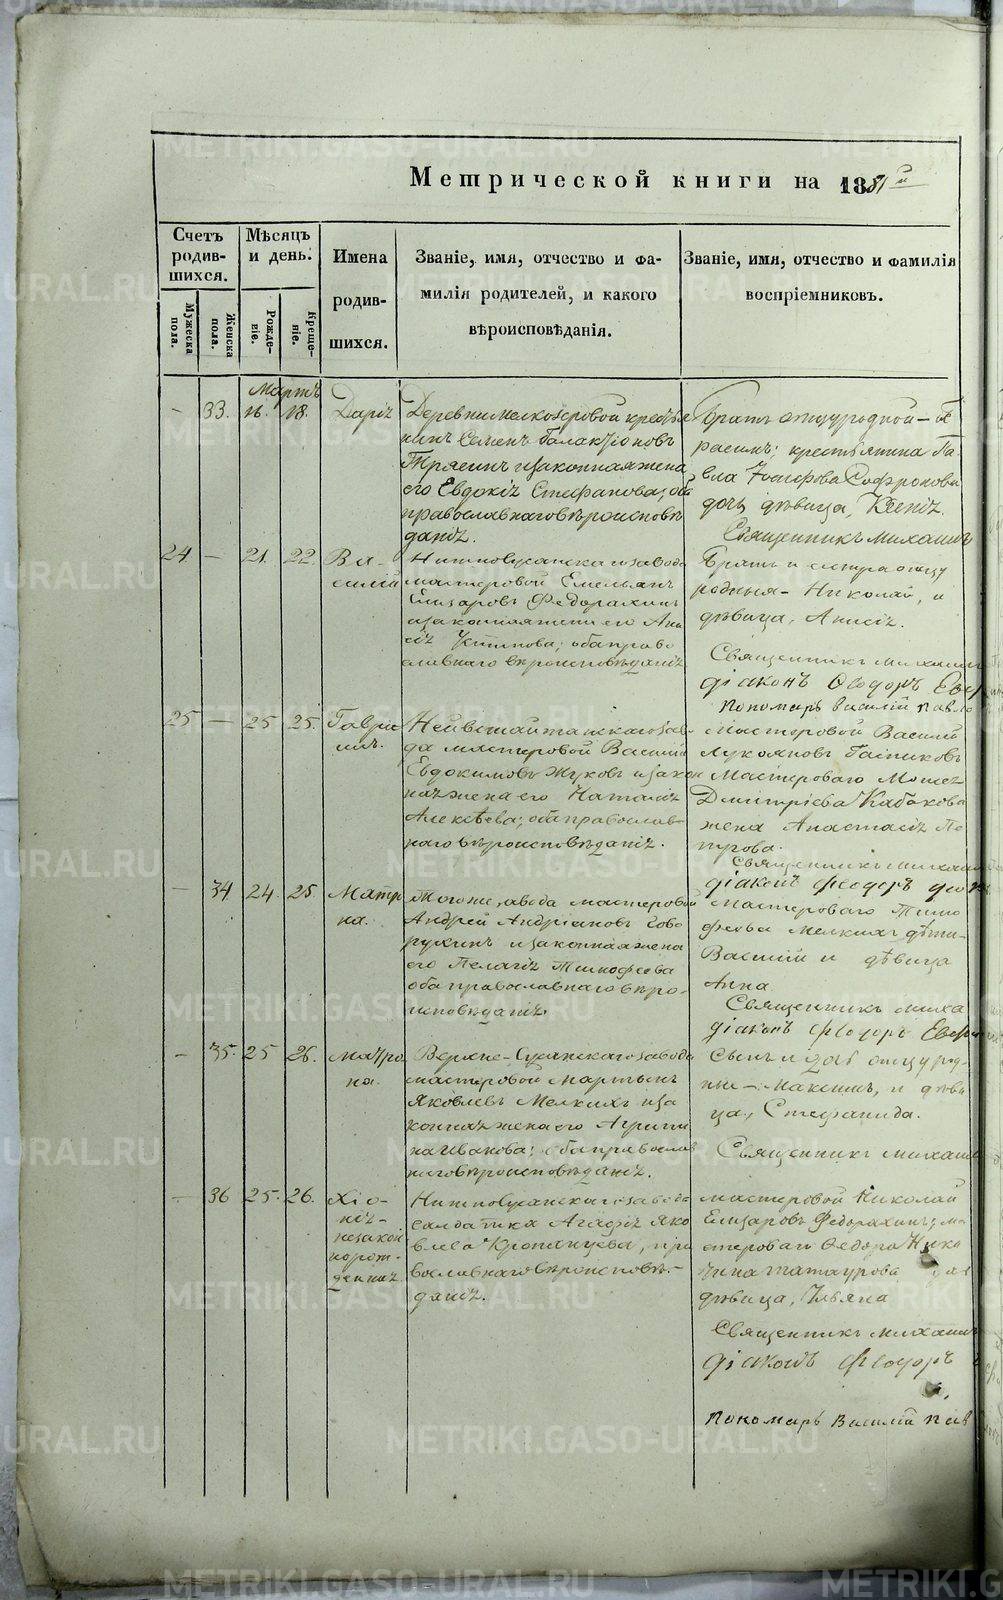 Метрической книги на 1881 й
Счетъ родив-шихся.
Мужеска пола.
Женска пола.
Мѣсяцъ и день.
Рожде-ніе.
Креще-ніе.
Имена
родив-
шихся.
Званіе, имя, отчество и фа-
милія родителей, и какого
вѣроисповѣданія.
Званіе, имя, отчество и фамилія
воспріемниковъ.
Мартъ
— 33. 18. Дарія
Деревни Мелкозеровой крестья
нинъ Семенъ Галактіоновъ
и законная жена
его Евдокія Стефанова, оба
православнаго вѣроисповѣ
данія.
Братъ отцуродной —
расимъ; крестьянина Па
вла Іосифова Софронова
дочь дѣвица, Ксенія.
Священникъ Михаилъ
24 — 21. 22. Ва-
силій
завода
мастеровой Емельянъ
Елизаровъ Федорахинъ
его Ани
сія Устинова; оба право
славнаго вѣроисповѣданія
Братъ и сестра отцу
родныя — Николай, и
дѣвица, Анисія.
Священникъ Михаилъ
діаконъ Ѳеодоръ
Пономарь Василій Павло
25 — 25 25. Гаврі
илъ.
Нейвошайтанскаго заво-
да мастеровой Василій
Евдокимовъ Жуковъ и закон
ная жена его Наталія
Алексѣева; оба православ-
наго вѣроисповѣданія.
мастеровой Василій
Лукояновъ
Мастероваго Моисея
Дмитріева Кабакова
жена Анастасія Пе
трова.
Священникъ Михаилъ
діаконъ Ѳеодоръ
— 34 24. 25. Матр
на.
Тогоже завода мастеровой
Андрей Андріановъ Гово
рухинъ и законная жена
его Пелагія Тимофеева
оба православнаго вѣро-
исповѣданія.
Мастероваго Тимо
феева Мелкихъ дѣти —
Василій и дѣвица
Анна
Священникъ Миха
діаконъ Ѳеодоръ
— 35. 25 26. Матро
на.
завода
мастеровой Мартынъ
Яковлевъ Мелкихъ и за
конная жена его Агрипи
на Иванова; оба православ
наго вѣроисповѣданія.
отцу род-
ные — Максимъ, и дѣви
ца, Стефанида.
Священникъ Михаил
— 36 25. 26. Хіо-
нія —
незакон
норож-
денная
завода
солдатка Агафія Яко
влева пра
вославнаго вѣроисповѣ-
данія.
мастеровой Николай
Елизаровъ Федорахинъ; ма
стероваго Ѳедора Ники
тина Шатаурова
дѣвица, Ульяна
Священникъ Михаил
діаконъ Ѳеодоръ
Пономарь Василій Пав
METRIKI.GASO-URAL.RU